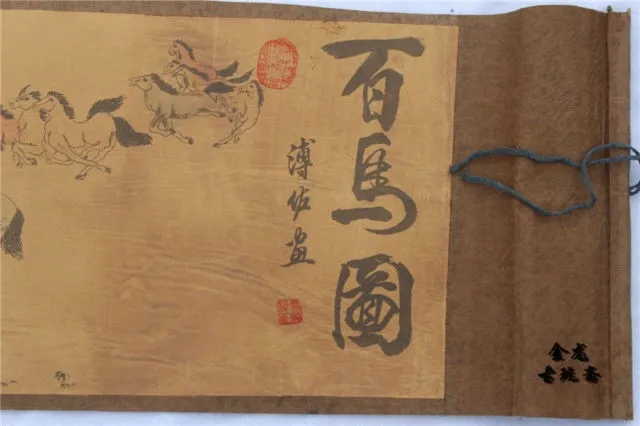 百馬圖
溥佐畫
金虎
古玩齋